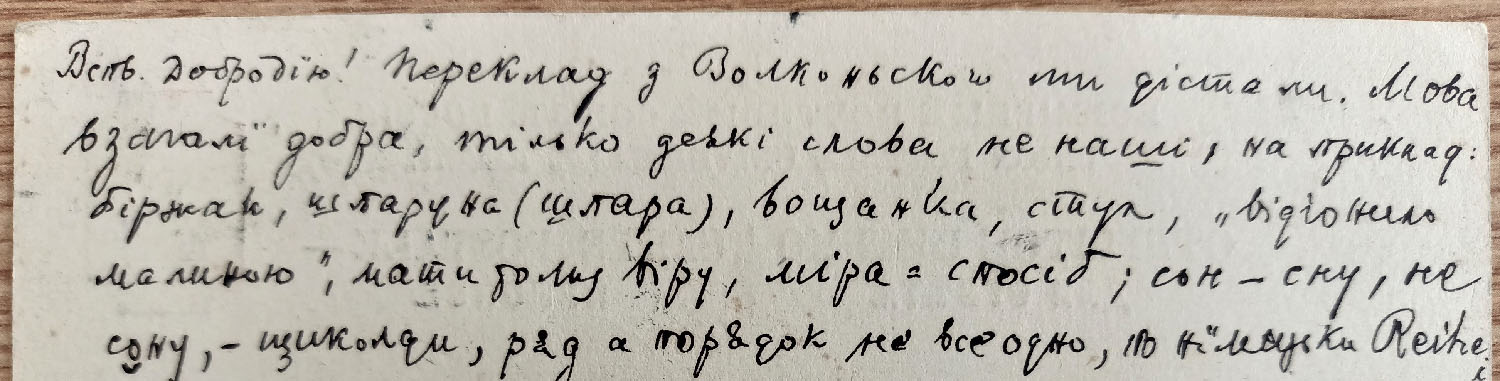 Всп. Добродію! Переклад з Волконьскою ми дістали. Мова
взагалї добра, тілько деякі слова не наші, на приклад:
біржак, шпаруна (шпара), вощанка, стул, „відгонило
малиною", мати віру, міра = спосіб; сон – сну, не
сону, – щиколди, ряд а порядок не все одно, по нїмецьки Reihe